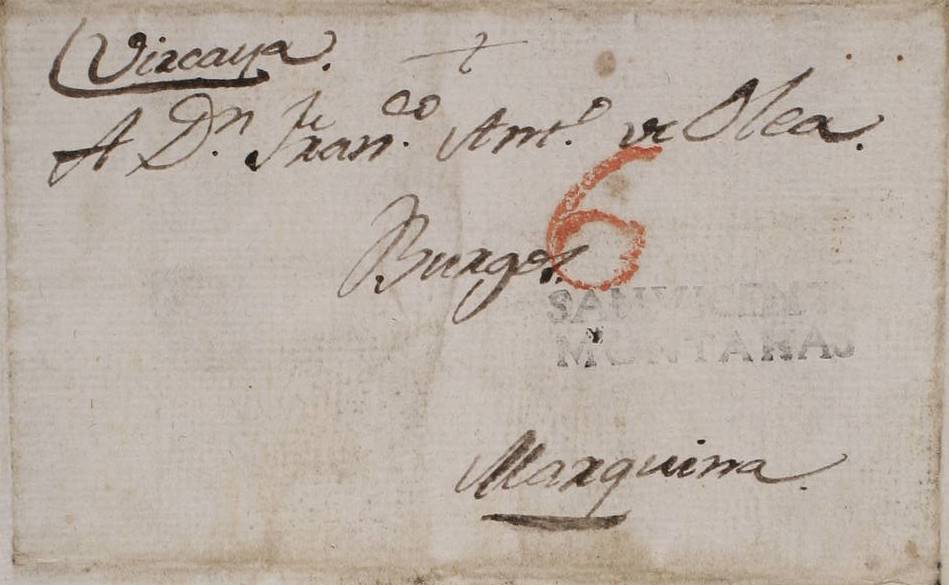 Vizcaya.
A Dn. Franco. Anto. de Olea.
Burgos.
6
SAN VICENTE
MONTAÑAS
Marquina.